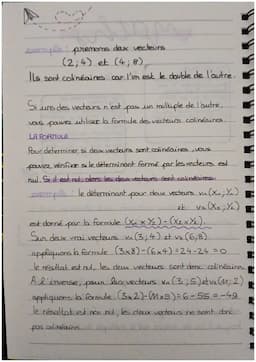 exemple : prenons deux vecteurs
(2;4) et (4;8)
Ils sont colinéaires car l'un est le double de l'autre.
Si un des vecteurs n'est pas un multiple de l'autre,
vous pouvez utiliser la formule des vecteurs colinéaires.
LA FORMULE
Pour déterminer si deux vecteurs sont colinéaires, vous
pouvez vérifier si le déterminant formé par les vecteurs est
nul. Si il est nul, alors les deux vecteurs sont colinéaires.
exemple : le déterminant pour deux vecteurs
et
est donné par la formule (X₁ x Y₂) - (X₂ x Y₁).
Sur deux vrai vecteurs v₁(3;4) et v₂(6;8)
appliquons la formule (3x8)-(6x4)=24-24=0
le résultat est nul, les deux vecteurs sont donc colinéaires.
A l'inverse, pour les vecteurs
appliquons la formule (3x2)-(11x5)=6-55=-49
le résultat est non nul, les deux vecteurs ne sont donc
pas colinéaires.